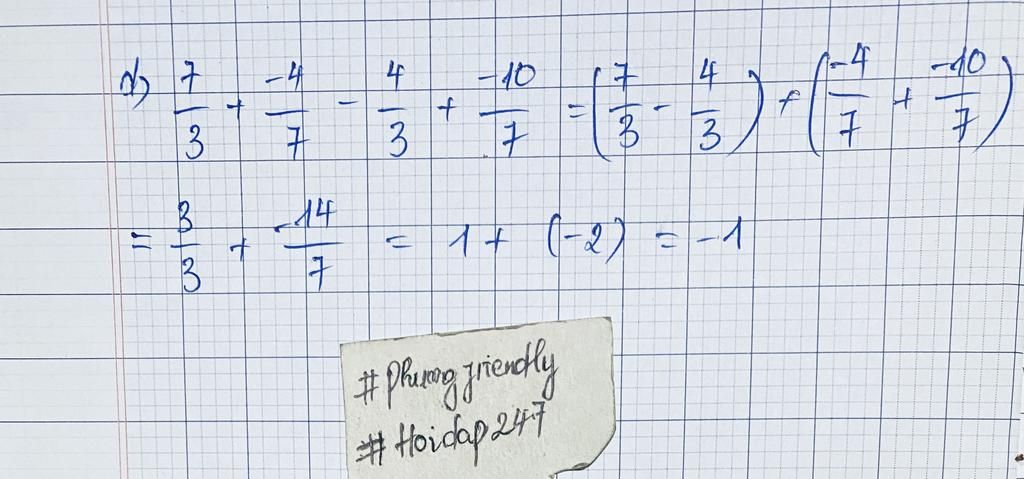 d) 7/3 + -4/7 - 4/3 + -10/7 = (7/3 - 4/3) + (-4/7 + -10/7)
= 3/3 + -14/7 = 1 + (-2) = -1
# Phuongfriendly
# Hoidap247